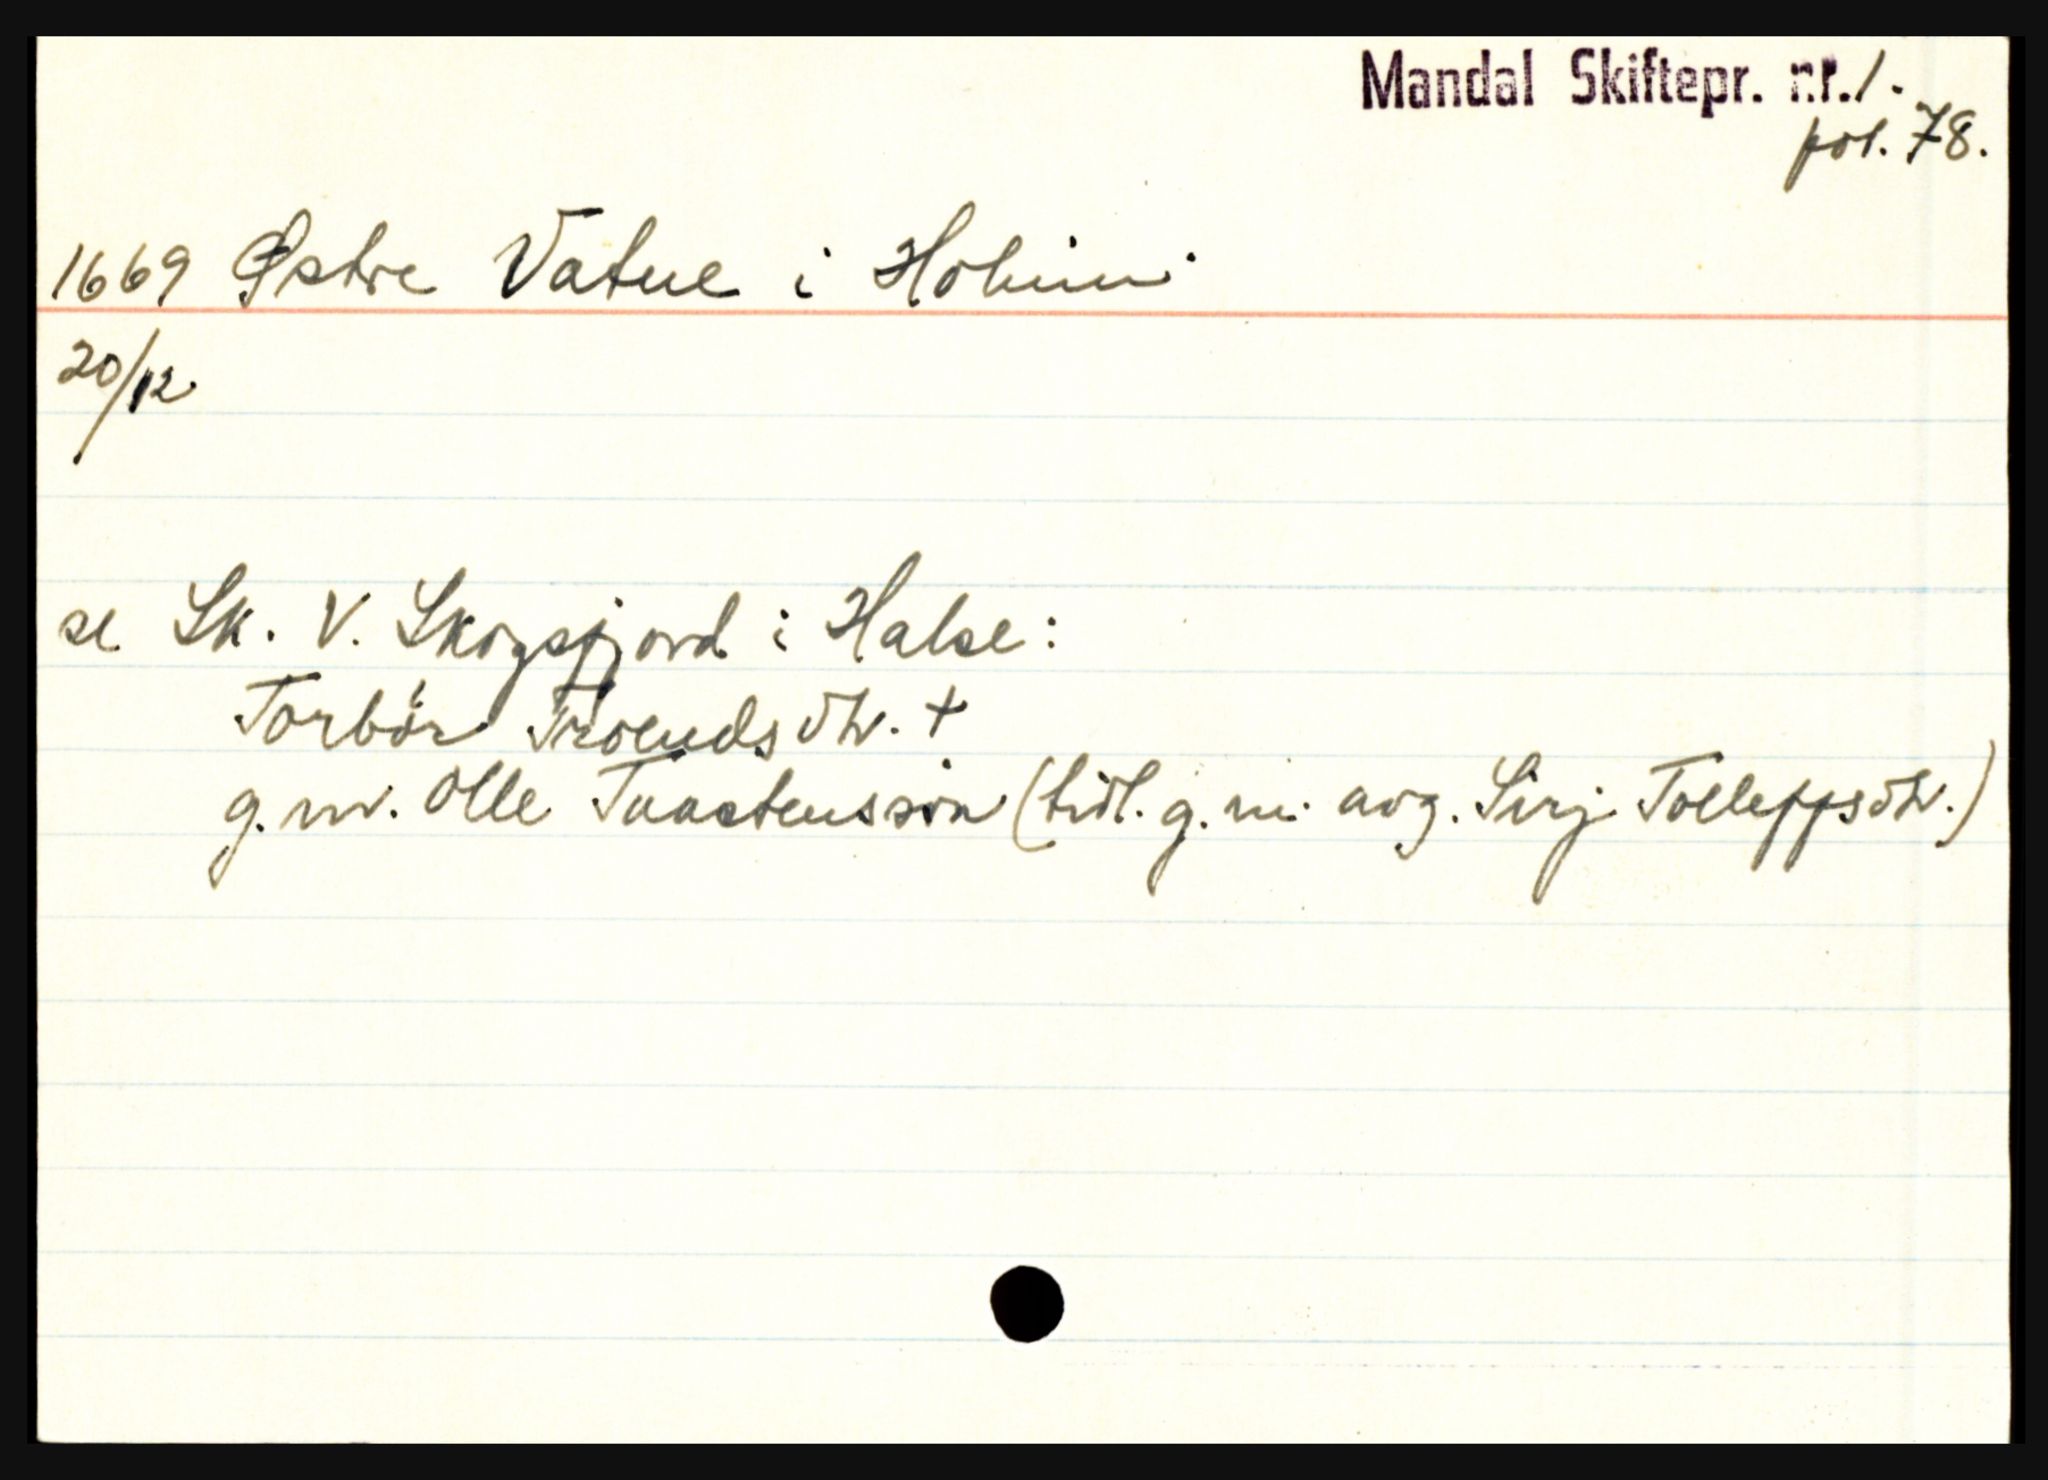 Mandal Skiftepr. nr. 1.
fol. 78.
1669 Østre Vatne i Holum.
20/12
se Sk. V. Skogsfjord i Halse:
Torbör Troendsdtr. +
g.m. Olle Taastenssön (tidl. g.m. avg. Sirj Tolleffsdtr.)